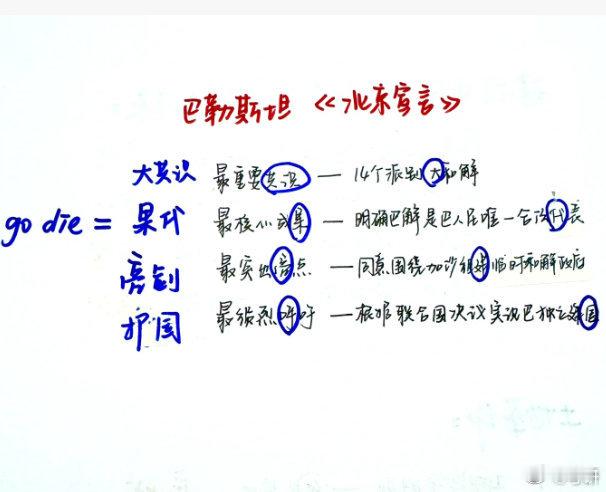 巴勒斯坦《北京宣言》
大共识 最重要共识 — 14个派别大和解
go die = 果代 最核心成果 — 明确巴解是巴人民唯一合法代表
亮组 最突出亮点 — 同意围绕加沙组建临时和解政府
呼国 最强烈呼吁 — 根据联合国决议实现巴独立建国